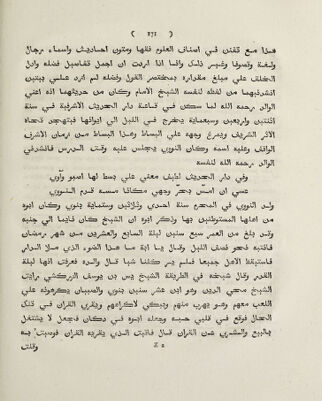 ( ١٧١ )
هذا مع تفنن في اصناف العلوم فقها ومتون احاديث واسماء رجال
ولغة وتصوفا وغير ذلك وانا اذا اردت ان اجمل تفاصيل فضله وادل
الخلق على مبلغ مقداره بمختصر القول وفصله لم ازد على بيتين
انشدنيهما من لفظه لنفسه الشيخ الامام وكان من حديثهما انه اعني
الوالد رحمه الله لما سكن في قاعة دار الحديث الاشرفية في سنة
اثنتين واربعين وسبعماية يخرج في الليل الى ايوانها ليتهجد تجاه
الاثر الشريف ويمرغ وجهه على البساط وهذا البساط من زمان الاشرف
الواقف وعليه اسمه وكان النووي يجلس عليه وقت الدرس فانشدني
الوالد رحمه الله لنفسه
وفي دار الحديث لطيف معنى على بسط لها اصبو وآوي
عسى ان امس بحر وجهي مكانا مسه قدم النووي
ولد النووي في المحرم سنة احدى وثلاثين وستماية بنوى وكان ابوه
من اهلها المستوطنين بها وذكر ابوه ان الشيخ كان نايما الى جنبه
وقد بلغ من العمر سبع سنين ليلة السابع والعشرين من شهر رمضان
فانتبه نحو نصف الليل وقال يا ابه ما هذا الضوء الذي ملا الدار
فاستيقظ الاهل جميعا فلم نر كلنا شيا قال والده فعرفت انها ليلة
القدر وقال شيخه في الطريقة الشيخ يس بن يوسف الزركشي رايت
الشيخ محيي الدين وهو ابن عشر سنين بنوى والصبيان يكرهونه على
اللعب معهم وهو يهرب منهم ويبكي لاكراههم ويقرى القران في تلك
الحال فوقع في قلبي حبه وجعله ابوه في دكان فجعل لا يشتغل
بالبيع والشرى عن القران قال فاتيت الذي يقريه القران فوصيته به
Z 2 وقلت